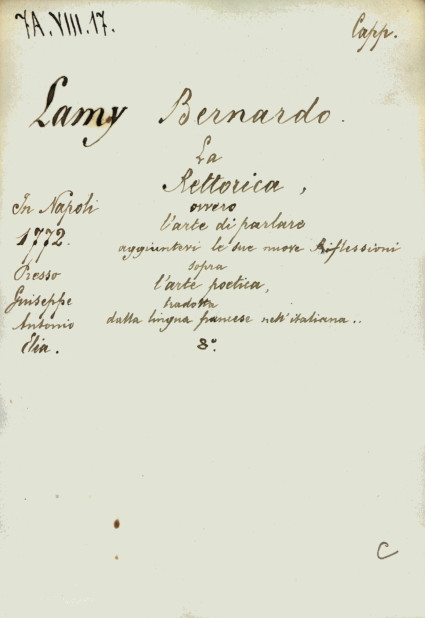 7A.VIII.17.
Capp.
Lamy Bernardo.
La
Rettorica,
In Napoli
ovvero
l'arte di parlare
1772.
aggiuntevi le sue nuove Riflessioni
Presso
sopra
Giuseppe
l'arte poetica,
tradotta
Antonio
dalla lingua francese nell'italiana..
Elia.
8°.
C